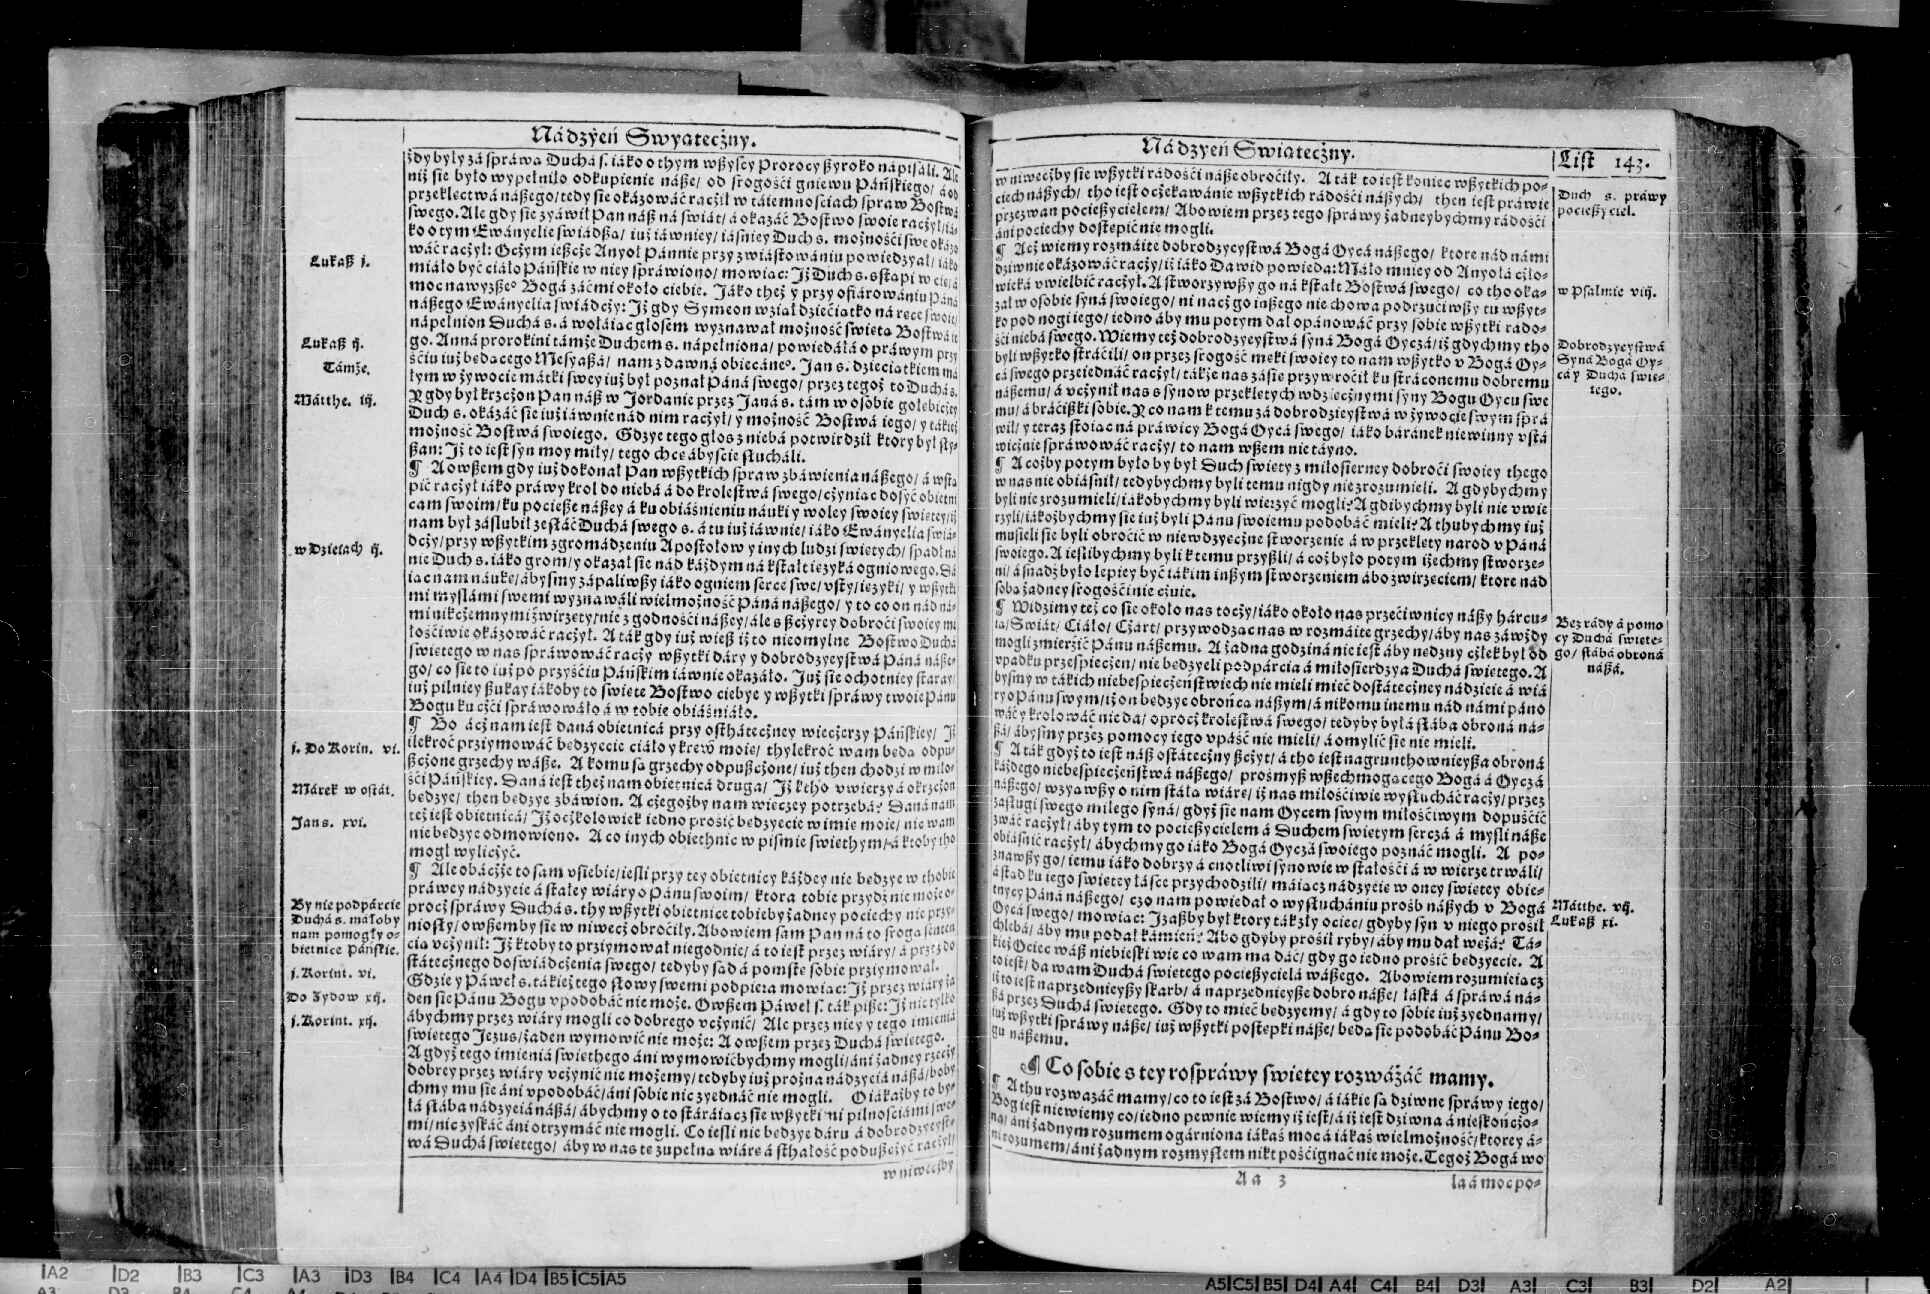 Ná dzyeń Swyątecżny.
żdy były zá spráwą Duchá s. iáko o thym wßyscy Prorocy ßyroko nápisáli. Ale
niż sie było wypełniło odkupienie náße/ od srogośći gniewu Páńskiego/ á od
przeklęctwá náßego/ tedy sie okázowáć racżił w táiemnościach spraw Bostwá
swego. Ale gdy sie zyáwił Pan náß ná swiát/ á okazáć Bostwo swoie racżył/ iá-
ko o tym Ewányelie swiádßą/ iuż iáwniey/ iáśniey Duch s. możnośći swe okázo
wáć racżył: Ocżym ießcże Anyoł Pánnie przy zwiástowániu powiedzyał/ iáko
miáło być ciáło Páńskie w niey spráwiono/ mowiąc: Iż Duch s. sstąpi w cię/ á
moc nawyzße° Bogá záćmi około ciebie. Iáko theż y przy ofiárowániu Páná
nášego Ewányelia swiádcży: Iż gdy Symeon wziął dziećiątko ná ręce swoie/
nápełnion Duchá s. á wołáiąc głosem wyznawał możność swiętą Bostwá ie
go. Anná prorokini támże Duchem s. nápełniona/ powiedáłá o práwym przy
śćiu iuż będącego Mesyaßá/ nam z dawná obiecáne°. Jan s. dzieciątkiem ma
łym w żywocie mátki swey iuż był poznał Páná swego/ przez tegoż to Duchá s.
Y gdy był krzcżon Pan náß w Jordanie przez Janá s. tám w osobie gołębicżey
Duch s. okázáć sie iuż iáwnie nád nim racżył/ y możność Bostwá iego/ y tákież
możność Bostwá swoiego. Gdzye tego głos z niebá potwirdził ktory był sły-
ßan: Iż to iest syn moy miły/ tego chcę ábyście słucháli.
¶ A owßem gdy iuż dokonał Pan wßytkich spraw zbáwienia náßego/ á wstą
pić racżył iáko práwy krol do niebá á do krolestwá swego/ cżyniąc dosyć obietni
cam swoim/ ku pocieße náßey á ku obiáśnieniu náuki y woley swoiey swiętey/ iż
nam był záslubił zesłáć Duchá swego s. á tu iuż iáwnie/ iáko Ewányelia swiá-
dcży/ przy wßytkim zgromádzeniu Apostołow y inych ludzi swiętych/ spadł ná
nie Duch s. iáko grom/ y okazał sie nád káżdym ná kstałt ięzyká ogniowego. Dá
iąc nam náukę/ ábysmy zápaliwßy iáko ogniem serce swe/ vsty/ ięzyki/ y wßytki
mi myslámi swemi wyznawáli wielmożność Páná náßego/ y to co on nád ná-
mi nikcżemnymi żwirzęty/ nie z godnośći náßey/ ále s ßcżyrey dobroći swoiey mi
łośćiwie okázowáć racżył. A ták gdy iuż wieß iż to nieomylne Bostwo Duchá
swiętego w nas spráwowáć racży wßytki dáry y dobrodzyeystwá Páná náße-
go/ co sie to iuż po przyśćiu Páńskim iáwnie okazáło. Już sie ochotniey stáray/
iuż pilniey ßukay iákoby to swięte Bostwo ciebye y wßytki spráwy twoie Pánu
Bogu ku cżći spráwowáło á w tobie obiáśniáło.
¶ Bo ácż nam iest daná obietnicá przy osthátecżney wiecżerzy Páńskiey/ Iż
ilekroć przyimowáć będzyecie ciáło y krew moię/ thylekroć wam będą odpu-
ßcżone grzechy wáße. A komu są grzechy odpußcżone/ iuż then chodzi w miło-
śći Páńskiey. Daná iest theż nam obietnicá druga/ Iż kżho vwierzy á okrzcżon
będzye/ then będzye zbáwion. A cżegożby nam więcey potrzebá? Daná nam
też iest obietnicá/ Iż ocżkolowiek iedno prośić będzyecie w imię moie/ nie wam
nie będzye odmowiono. A co inych obiethnic w piśmie swiethym/ á ktoby tho
mogł wylicżyć.
¶ Ale obácżże to sam vsiebie/ iesli przy tey obietnicy káżdey nie będzye w thobie
práwey nádzyeie á stałey wiáry o Pánu swoim/ ktora tobie przydź nie może o-
procż spráwy Duchá s. thy wßytki obietnice tobieby żadney pociechy nie przy-
niosły/ owßemby sie w niwecż obroćiły. Abowiem sam Pan ná to srogą senten
cią vcżynił: Iż ktoby to przyimował niegodnie/ á to iest przez wiáry/ á przez do
státecżnego doswiádcżenia swego/ tedyby sąd á pomstę sobie przyimował.
Gdzie y Páweł s. tákież tego słowy swemi podpiera mowiąc: Iż przez wiáry ża
den sie Pánu Bogu vpodobáć nie może. Owßem Páweł s. ták piße: Iż nie tylko
ábychmy przez wiáry mogli co dobrego vcżynić/ Ale przez niey y tego imieniá
swiętego Jezus/ żaden wymowić nie może: A owßem przez Duchá swiętego.
A gdyż tego imieniá swiethego áni wymowićbychmy mogli/ áni żadney rzecży
dobrey przez wiáry vcżynić nie możemy/ tedyby iuż prożna nádzyeiá náßá/ boby
chmy mu sie áni vpodobáć/ áni sobie nic zyednáć nie mogli. O iákażby to by-
łá słába nádzyeiá náßá/ ábychmy o to stáráiącz sie wßytkimi pilnośćiámi swe-
mi/ nic zyskáć áni otrzymáć nie mogli. Co iesli nie będzye dáru á dobrodzyeyst-
wá Duchá swiętego/ áby w nas tę zupełną wiárę á sthałość podußcżyć racżył/
w niwecżby
Lukaß j.
Lukaß ij.
Támże.
Mátthe. iij.
w Dzieiach ij.
j. Do Korin. vi.
Márek w ostát.
Jan s. xvi.
By nie podpárcie
Duchá s. máłoby
nam pomogły o-
bietnice Páńskie.
j. Korint. vi.
Do Żydow xij.
j. Korint. xij.
Ná dzyeń Swiątecżny.
List 143.
w niwecżby sie wßytki rádośći náße obroćiły. A ták to iest koniec wßytkich po-
ciech náßych/ tho iest ocżekawánie wßytkich rádośći náßych/ then iest práwie
przezwan pocießycielem/ Abowiem przez tego spráwy żadneybychmy rádośći
áni pociechy dostępić nie mogli.
¶ Acż wiemy rozmáite dobrodzyeystwá Bogá Oycá náßego/ ktore nád námi
dziwnie okázowáć racży/ iż iáko Dawid powieda: Máło mniey od Anyołá cżło-
wieká vwielbić racżył. A stworzywßy go ná kstałt Bostwá swego/ co tho oká-
zał w osobie syná swoiego/ ni nacż go inßego nie chowa podrzućiwßy tu wßyt-
ko pod nogi iego/ iedno áby mu potym dał opánowáć przy sobie wßytki rádo-
śći niebá swego. Wiemy też dobrodzyeystwá syná Bogá Oyczá/ iż gdychmy tho
byli wßytko stráćili/ on przez srogość męki swoiey to nam wßytko v Bogá Oy-
cá swego przeiednáć racżył/ tákże nas zásię przywroćił ku stráconemu dobremu
náßemu/ á vcżynił nas s synow przeklętych wdzięcżnymi syny Bogu Oycu swe
mu/ á brácißki sobie. Y co nam k temu zá dobrodzieystwá w żywocie swym sprá
wił/ y teraz stoiąc ná práwicy Bogá Oycá swego/ iáko báránek niewinny vstá
wicżnie spráwowáć racży/ to nam wßem nie táyno.
¶ A cożby potym było by był Duch swięty z miłosierney dobroći swoiey thego
w nas nie obiáśnił/ tedybychmy byli temu nigdy nie zrozumieli. A gdybychmy
byli nie zrozumieli/ iákobychmy byli wierzyć mogli? A gdibychmy byli nie vwie
rzyli/ iákożbychmy sie iuż byli Pánu swoiemu podobáć mieli? A thubychmy iuż
musieli sie byli obroćić w niewdzyęcżne stworzenie á w przeklęty narod v Páná
swoiego. A ieslibychmy byli k temu przyßli/ á coż było potym iżechmy stworze-
ni/ á snadź było lepiey być tákim inßym stworzeniem ábo zwirzęciem/ ktore nád
sobą żadney srogośći nie cżuie.
¶ Widzimy też co sie około nas tocży/ iáko około nas przećiwnicy náßy hárcu-
ią/ Swiát/ Ciáło/ Cżárt/ przywodząc nas w rozmáite grzechy/ áby nas záwżdy
mogli zmierźić Pánu náßemu. A żadna godziná nie iest áby nędzny cżłek był od
vpadku przespiecżen/ nie będzyeli podpárcia á miłosierdzya Duchá swiętego. A
bysmy w tákich niebespiecżeństwiech nie mieli mieć dostátecżney nádzieie á wiá
ry o Pánu swym/ iż on będzye obrońcą náßym/ á nikomu inemu nád námi páno
wáć y krolowáć nie da/ oprocż krolestwá swego/ tedyby byłá słába obroná ná-
ßá/ ábysmy przez pomocy iego vpáść nie mieli/ á omylić sie nie mieli.
¶ A ták gdyż to iest náß ostátecżny ßcżyt/ á tho iest nagruthownieyßa obroná
káżdego niebespiecżeństwá náßego/ prośmyß wßechmogącego Bogá á Oyczá
náßego/ wzyąwßy o nim stałą wiárę/ iż nas miłośćiwie wysłucháć racży/ przez
zasługi swego miłego syná/ gdyż sie nam Oycem swym miłośćiwym dopuśćić
zwáć racżył/ áby tym to pocießycielem á Duchem swiętym sercżá á mysli náße
obiáśnić racżył/ ábychmy go iáko Bogá Oyczá swoiego poznáć mogli. A po-
znawßy go/ iemu iáko dobrzy á cnotliwi synowie w stałośći á w wierze trwáli/
á stąd ku iego swiętey łásce przychodzili/ máiącz nádzyeię w oney swiętey obie-
tnicy Páná náßego/ czo nam powiedał o wysłuchániu prośb náßych v Bogá
Oycá swego/ mowiąc: Izaßby był ktory ták zły ociec/ gdyby syn v niego prośił
chlebá/ áby mu podał kámień? Abo gdyby prośił ryby/ áby mu dał wężá? Tá-
kież Ociec wáß niebieski wie co wam ma dáć/ gdy go iedno prośić będzyecie. A
to iest/ da wam Duchá swiętego pocießycielá wáßego. Abowiem rozumieiącz
iż to iest naprzednieyßy skarb/ á naprzednieyße dobro náße/ łáská á spráwá ná-
ßá przez Duchá swiętego. Gdy to mieć będzyemy/ á gdy to sobie iuż zyednamy/
iuż wßytki spráwy náße/ iuż wßytki postępki náße/ będą sie podobáć Pánu Bo-
gu náßemu.
¶ Co sobie s tey rospráwy swiętey rozwáżáć mamy.
¶ A thu rozważáć mamy/ co to iest zá Bostwo/ á iákie są dziwne spráwy iego/
Bog iest niewiemy co/ iedno pewnie wiemy iż iest/ á iż iest dziwna á nieskońcżo-
na/ áni żadnym rozumem ogárniona iákaś moc á iákaś wielmożność/ ktorey á-
ni rozumem/ áni żadnym rozmysłem nikt pośćignąć nie może. Tegoż Bogá wo
Aa 3
la á moc po-
Duch s. práwy
pocießyciel.
w Psalmie viij.
Dobrodzyeystwá
Syná Bogá Oy-
cá y Duchá swię-
tego.
Bez rády á pomo
cy Duchá swięte-
go/ słába obroná
náßá.
Mátthe. vij.
Lukaß xi.
A2 D2 B3 C3 A3 D3 B4 C4 A4 D4 B5 C5 A5
A5 C5 B5 D4 A4 C4 B4 D3 A3 C3 B3 D2 A2